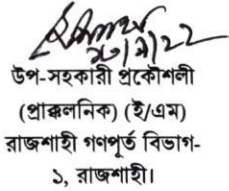 ২৮/৯/২২
উপ-সহকারী প্রকৌশলী
(প্রাক্কলনিক) (ই/এম)
রাজশাহী গণপূর্ত বিভাগ-
১, রাজশাহী।